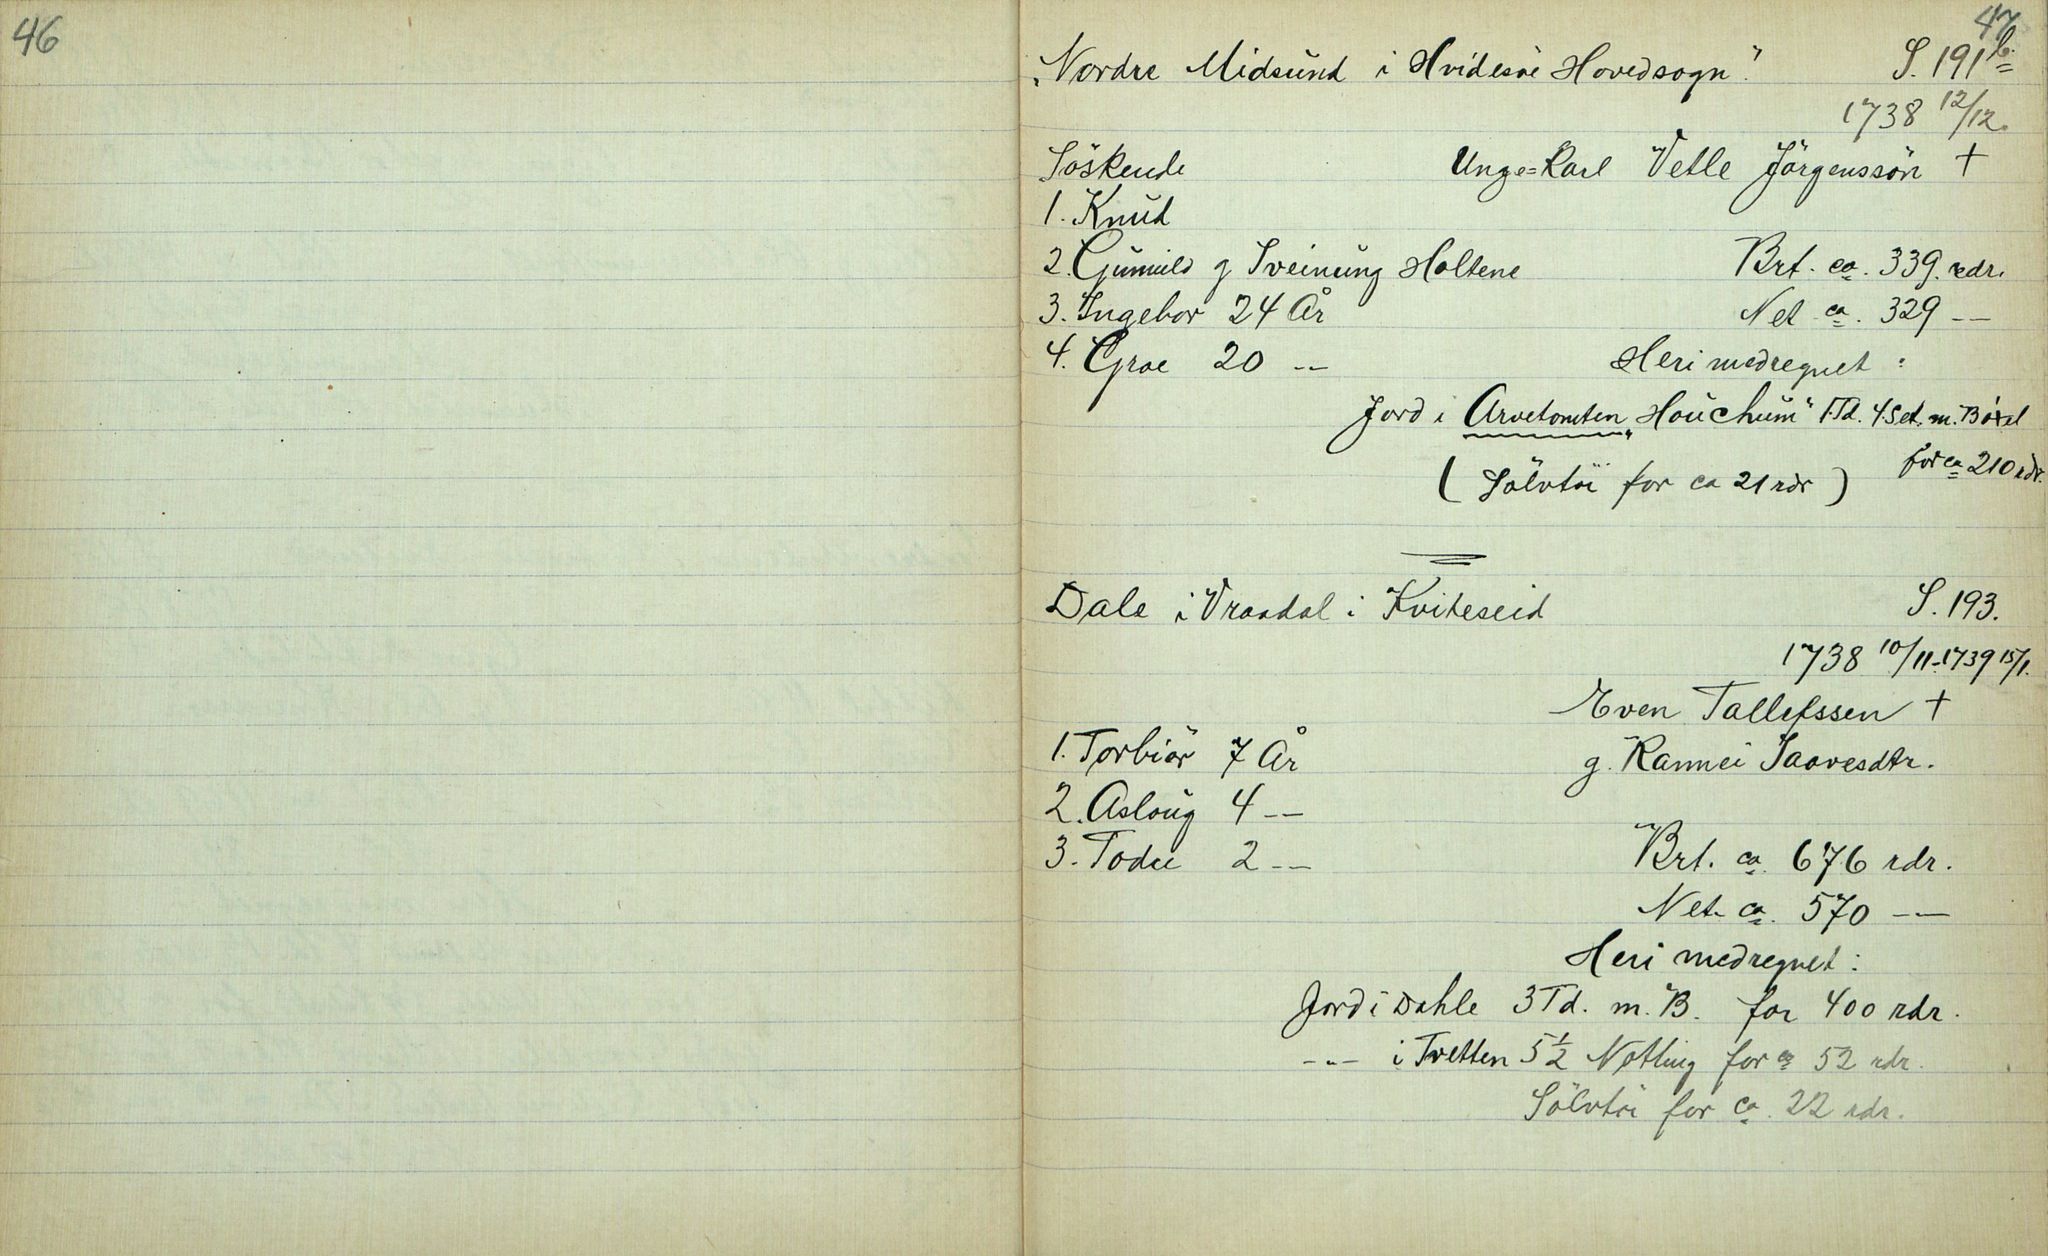 46
47
"Nordre Midsund i Hvidesöe Hovedsogn." S. 191 b.
1738 12/12.
Söskende Unge=Karl Vetle Jörgenssön †
1. Knud
2. Gunnild g Sveinung Holtene Brt. ca. 339. rdr.
3. Ingebor 24 År Net ca. 329 --
4. Groe 20 -- Heri medregnet :
Jord i Arvetomten "Houchum" 1 Td. 4 Set. m. Böxel
for ca 210 rdr.
( Sölvtöi for ca 21 rdr )
Dale i Vraadal i Kviteseid S. 193.
1738 10/11-1739 15/1.
Even Tallefssen †
1. Torbiör 7 År g. Rannei Saavesdtr.
2. Asloug 4 --
3. Todne 2 -- Brt. ca. 676 rdr.
Net. ca. 570 --
Heri medregnet :
Jord i Dahle 3 Td. m. B. for 400 rdr.
-"- i Tvetten 5 1/2 Notling for ca 52 rdr.
Sölvtöi for ca. 22 rdr.